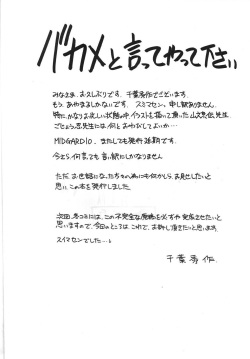 バカメと言ってやって下さい
みなさま、お久しぶりです、千葉秀作でございます。
もう、あやまるしかないです、スミマセン、申し訳ありません。
特に、かなりお忙しい状態の中イラストを描いて頂いた山文京伝先生
ごとう忍先生には何とおわびしてよいか…
MIDGARD10、またしても発行延期です。
今さら何言っても言い訳にしかなりません
ただ、お世話になった方々の為に千何からお見せしたいと
思い、この本を発行しました
次回、冬コミには、この不完全な原稿を必ずや完成させたいと
思いますので、今回のところはこれで、お許し頂きたいと思います。
スイマセンでした…
千葉秀作.